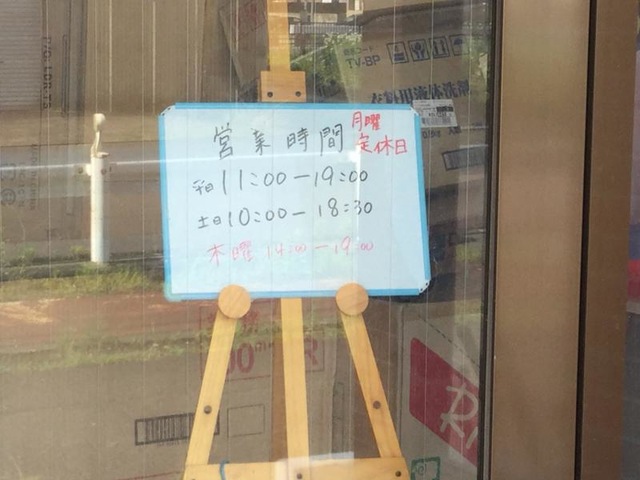 営業時間
月曜
定休日
平日 11:00-19:00
土日 10:00-18:30
木曜 14:00-19:00
TV-BP
衣料用液体洗剤